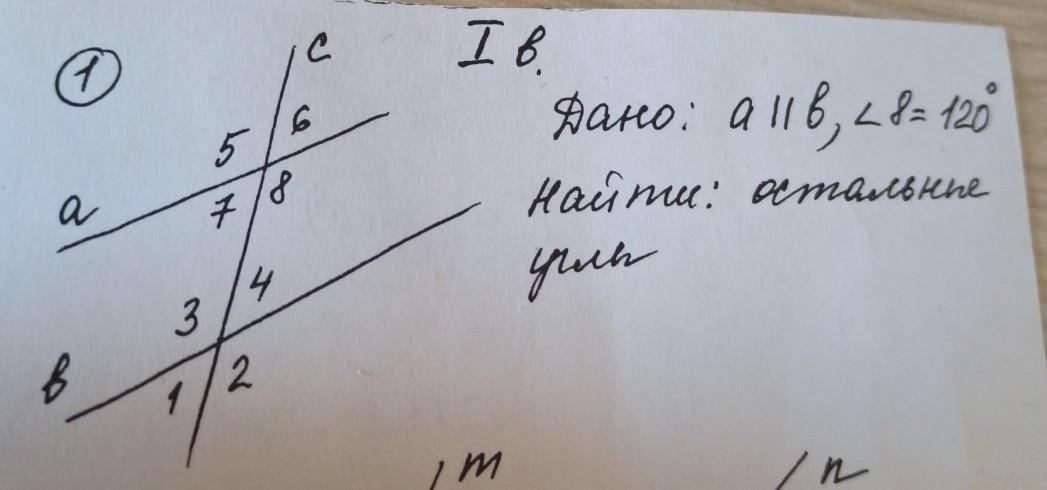 1
I в.
c
5 6
a
7 8
Дано: a || b, ∠8 = 120°
Найти: остальные
углы
3 4
в
1 2
m
n